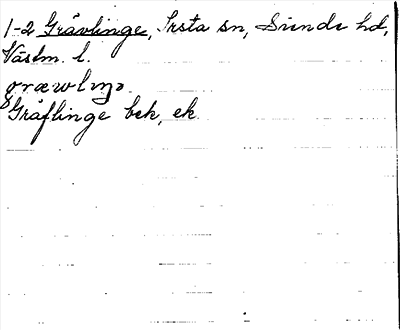 1-2 Grävlinge, Irsta sn, Siende hd,
Västm. l.
græwlıŋə.
Gräflinge bek, ek